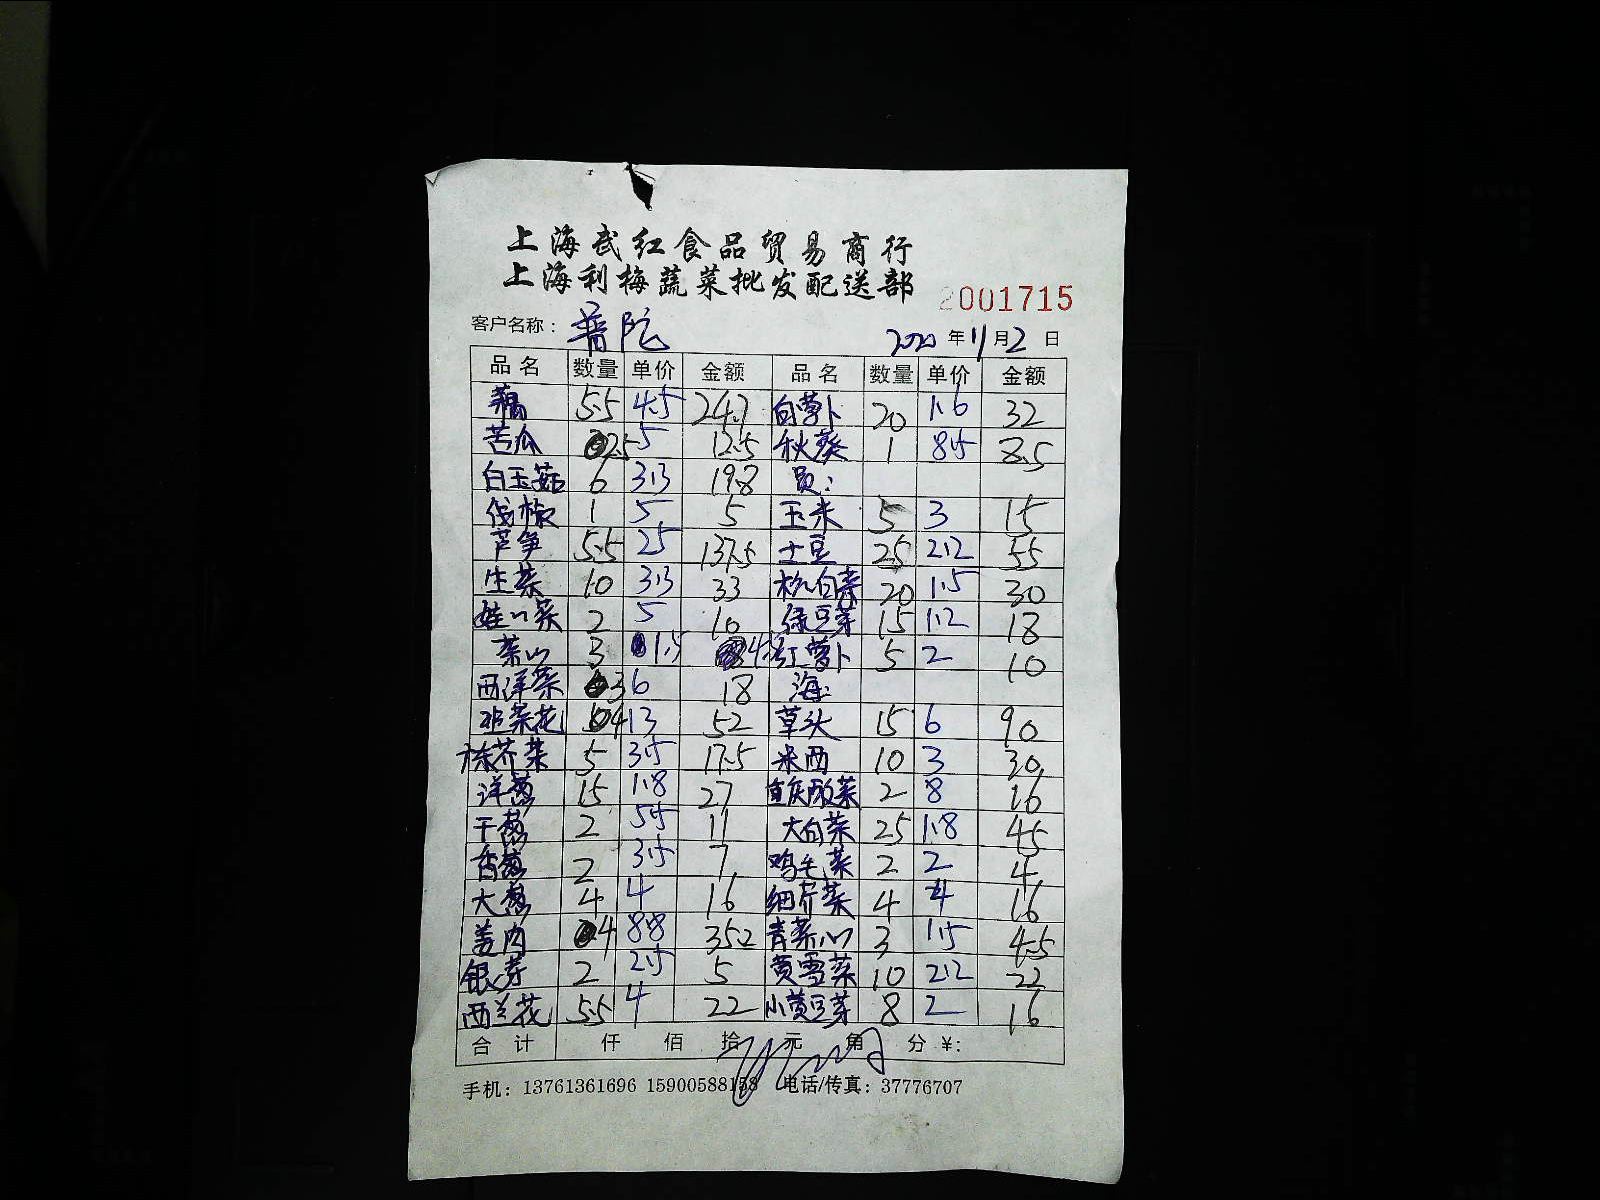 上海武红食品贸易商行
上海利梅蔬菜批发配送部
2001715
客户名称： 普陀 2020 年 11 月 2 日
品名 数量 单价 金额 品名 数量 单价 金额
藕 5.5 4.5 24.7 白萝卜 20 1.6 32
苦瓜 2.5 5 12.5 秋葵 1 8.5 8.5
白玉菇 6 3.3 19.8
1 5 5 玉米 5 3 15
芦笋 5.5 25 137.5 土豆 25 2.2 55
生菜 10 3.3 33 杭白菜 20 1.5 30
娃娃菜 2 5 10 绿豆芽 15 1.2 18
3 1.5 4.5 红萝卜 5 2 10
西洋菜 3 6 18 海:
韭菜花 4 13 52 草头 15 6 90
广东芥菜 5 3.5 17.5 米西 10 3 30
洋葱 15 1.8 27 2 8 16
干葱 2 5.5 11 大白菜 25 1.8 45
香葱 2 3.5 7 鸡毛菜 2 2 4
大葱 4 4 16 细芹菜 4 4 16
4 8.8 35.2 青菜心 3 1.5 4.5
银芽 2 2.5 5 黄雪菜 10 2.2 22
西兰花 5.5 4 22 小黄豆芽 8 2 16
合计 仟 佰 拾 元 角 分 ¥:
手机：13761361696 15900588158 电话/传真：37776707